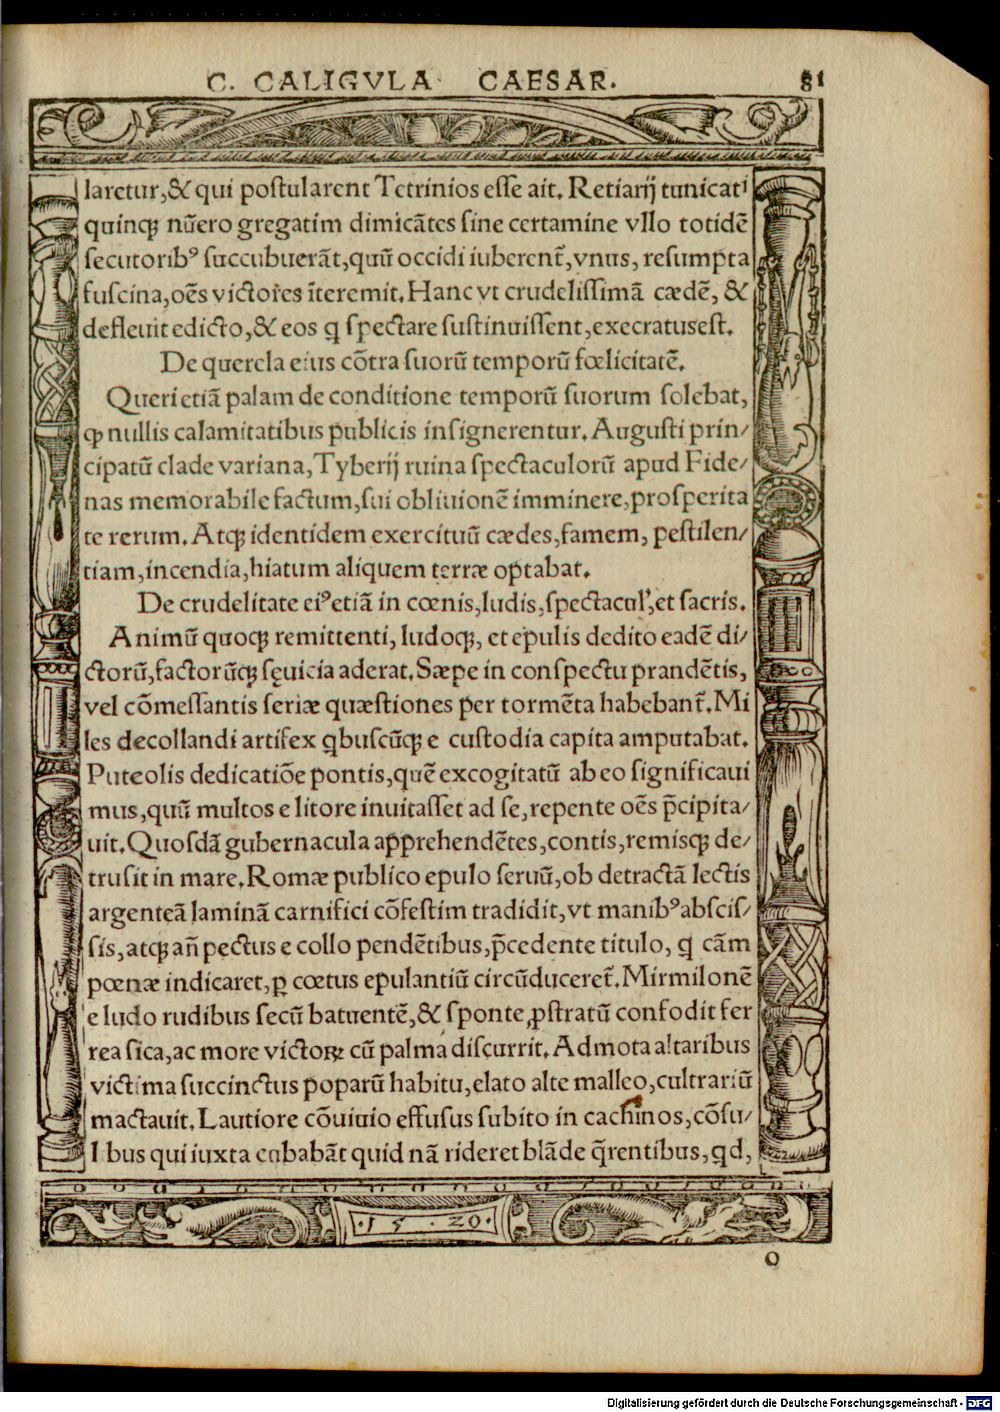 C. CALIGVLA CAESAR. 81
laretur,& qui postularent Tetrinios esse ait. Retiarij tunicati
quinqꝫ nũero gregatim dimicãtes sine certamine vllo totidẽ
secutoribꝰ succubuerãt,quũ occidi iuberent᷑,vnus, resumpta
fuscina,oẽs victores ĩteremit. Hanc vt crudelissimã cædẽ, &
defleuit edicto,& eos q̃ spectare sustinuissent,execratusest.
De querela eius cõtra suorũ temporũ fœlicitatẽ.
Queri etiã palam de conditione temporũ suorum solebat,
ꝙ nullis calamitatibus publicis insignerentur. Augusti prin/
cipatũ clade variana,Tyberij ruina spectaculorũ apud Fide/
nas memorabile factum,sui obliuionẽ imminere,prosperita
te rerum. Atqꝫ identidem exercituũ cædes,famem, pestilen/
tiam,incendia,hiatum aliquem terræ optabat.
De crudelitate eiꝰ etiã in cœnis,ludis,spectacul',et sacris.
Animũ quoqꝫ remittenti, ludoqꝫ, et epulis dedito eadẽ di/
ctorũ,factorũqꝫ sęuicia aderat. Sæpe in conspectu prandẽtis,
vel cõmessantis seriæ quæstiones per tormẽta habebant᷑. Mi
les decollandi artifex q̃buscũqꝫ e custodia capita amputabat.
Puteolis dedicatiõe pontis,quẽ excogitatũ ab eo significaui
mus,quũ multos e litore inuitasset ad se,repente oẽs p̃cipita/
uit. Quosdã gubernacula apprehendẽtes,contis,remisqꝫ de/
trusit in mare. Romæ publico epulo seruũ,ob detractã lectis
argenteã laminã carnifici cõfestim tradidit,vt manibꝰ abscis/
sis,atqꝫ añ pectus e collo pendẽtibus,p̃cedente titulo, q̃ cãm
pœnæ indicaret,ꝑ cœtus epulantiũ circũduceret᷑. Mirmilonẽ
e ludo rudibus secũ batuentẽ,& sponte ꝓstratũ confodit fer
rea sica,ac more victoꝝ cũ palma discurrit. Admota altaribus
victima succinctus poparũ habitu,elato alte malleo,cultrariũ
mactauit. Lautiore cõuiuio effusus subito in cachinos,cõsu/
l bus qui iuxta cubabãt quid nã rideret blãde q̃rentibus,qd,
·15·20·
O
Digitalisierung gefördert durch die Deutsche Forschungsgemeinschaft - DFG